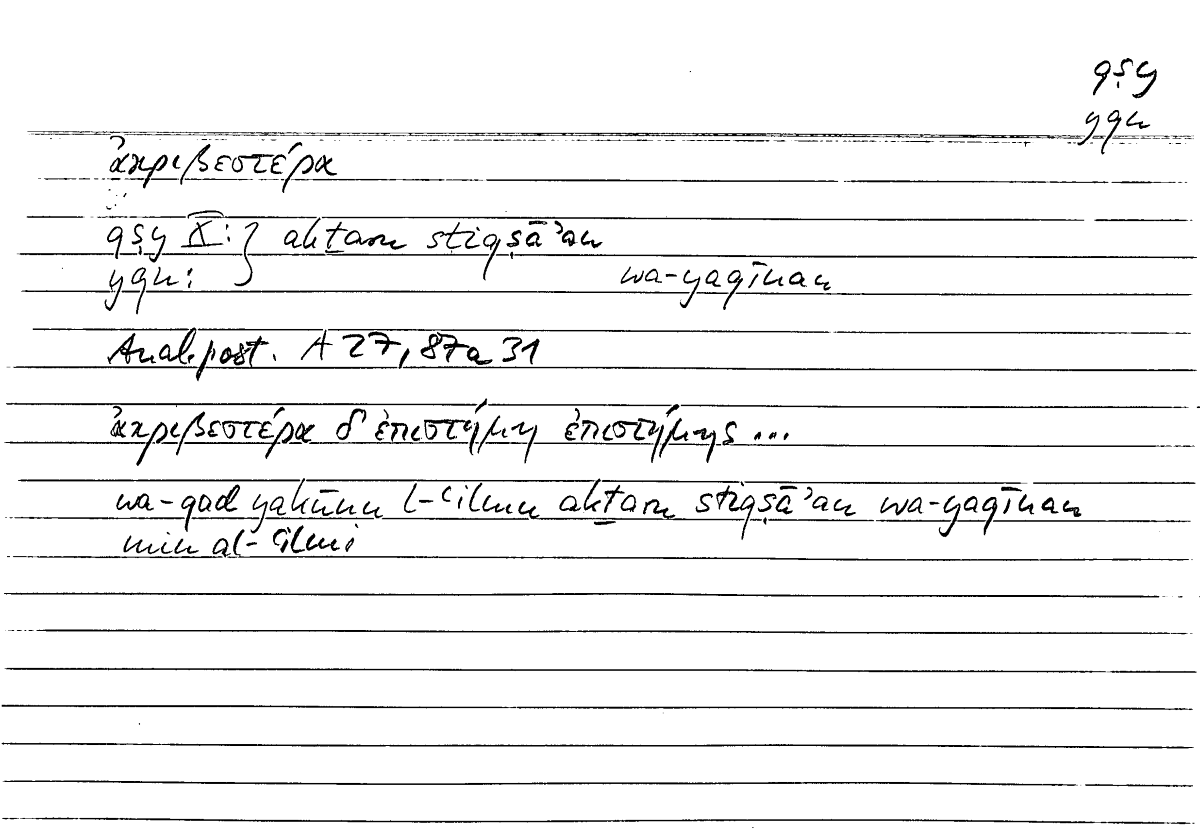 qṣy
yqn
ἀκριβεστέρα
qṣy X̅: } akṯaru stiqṣāʾan
yqn: wa-yaqīnan
Anal. post. A 27, 87a 31
ἀκριβεστέρα δ' ἐπιστήμη ἐπιστήμης ...
wa-qad yakūnu l-ʿilmu akṯaru stiqṣāʾan wa-yaqīnan
min al-ʿilmi